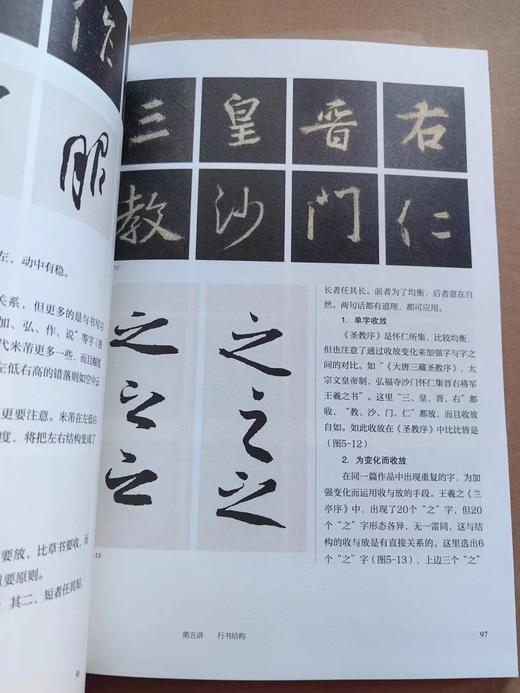 作
服
左，动中有稳。
关系，但更多的是与书写习
加、弘、作、说”等字（图
代米芾更多一些，而且幅度
左低右高的错落则如空中云
更要注意。米芾在左低右
度，将把左右结构变成了
要放，比草书要收，而
重要原则。
；其二，短者任其短，
三 皇 晋 右
教 沙 门 仁
12
之 之
之 之
之 之
-13
长者任其长。前者为了均衡，后者意在自
然。两句话都有道理，都可应用。
1．单字收放
《圣教序》是怀仁所集，比较均衡，
但也注意了通过收放变化来加强字与字之
间的对比。如“《大唐三藏圣教序》，太
宗文皇帝制，弘福寺沙门怀仁集晋右将军
王羲之书”。这里“三、皇、晋、右”都
收，“教、沙、门、仁”都放，而且收放
自如。如此收放在《圣教序》中比比皆是
（图5-12）
2．为变化而收放
在同一篇作品中出现重复的字，为加
强变化而运用收与放的手段。王羲之《兰
亭序》中，出现了20个“之”字，但20
个“之”字形态各异，无一雷同，这与结
构的收与放是有直接关系的。这里选出6
个“之”字（图5-13），上边三个“之”
第五讲 行书结构
97